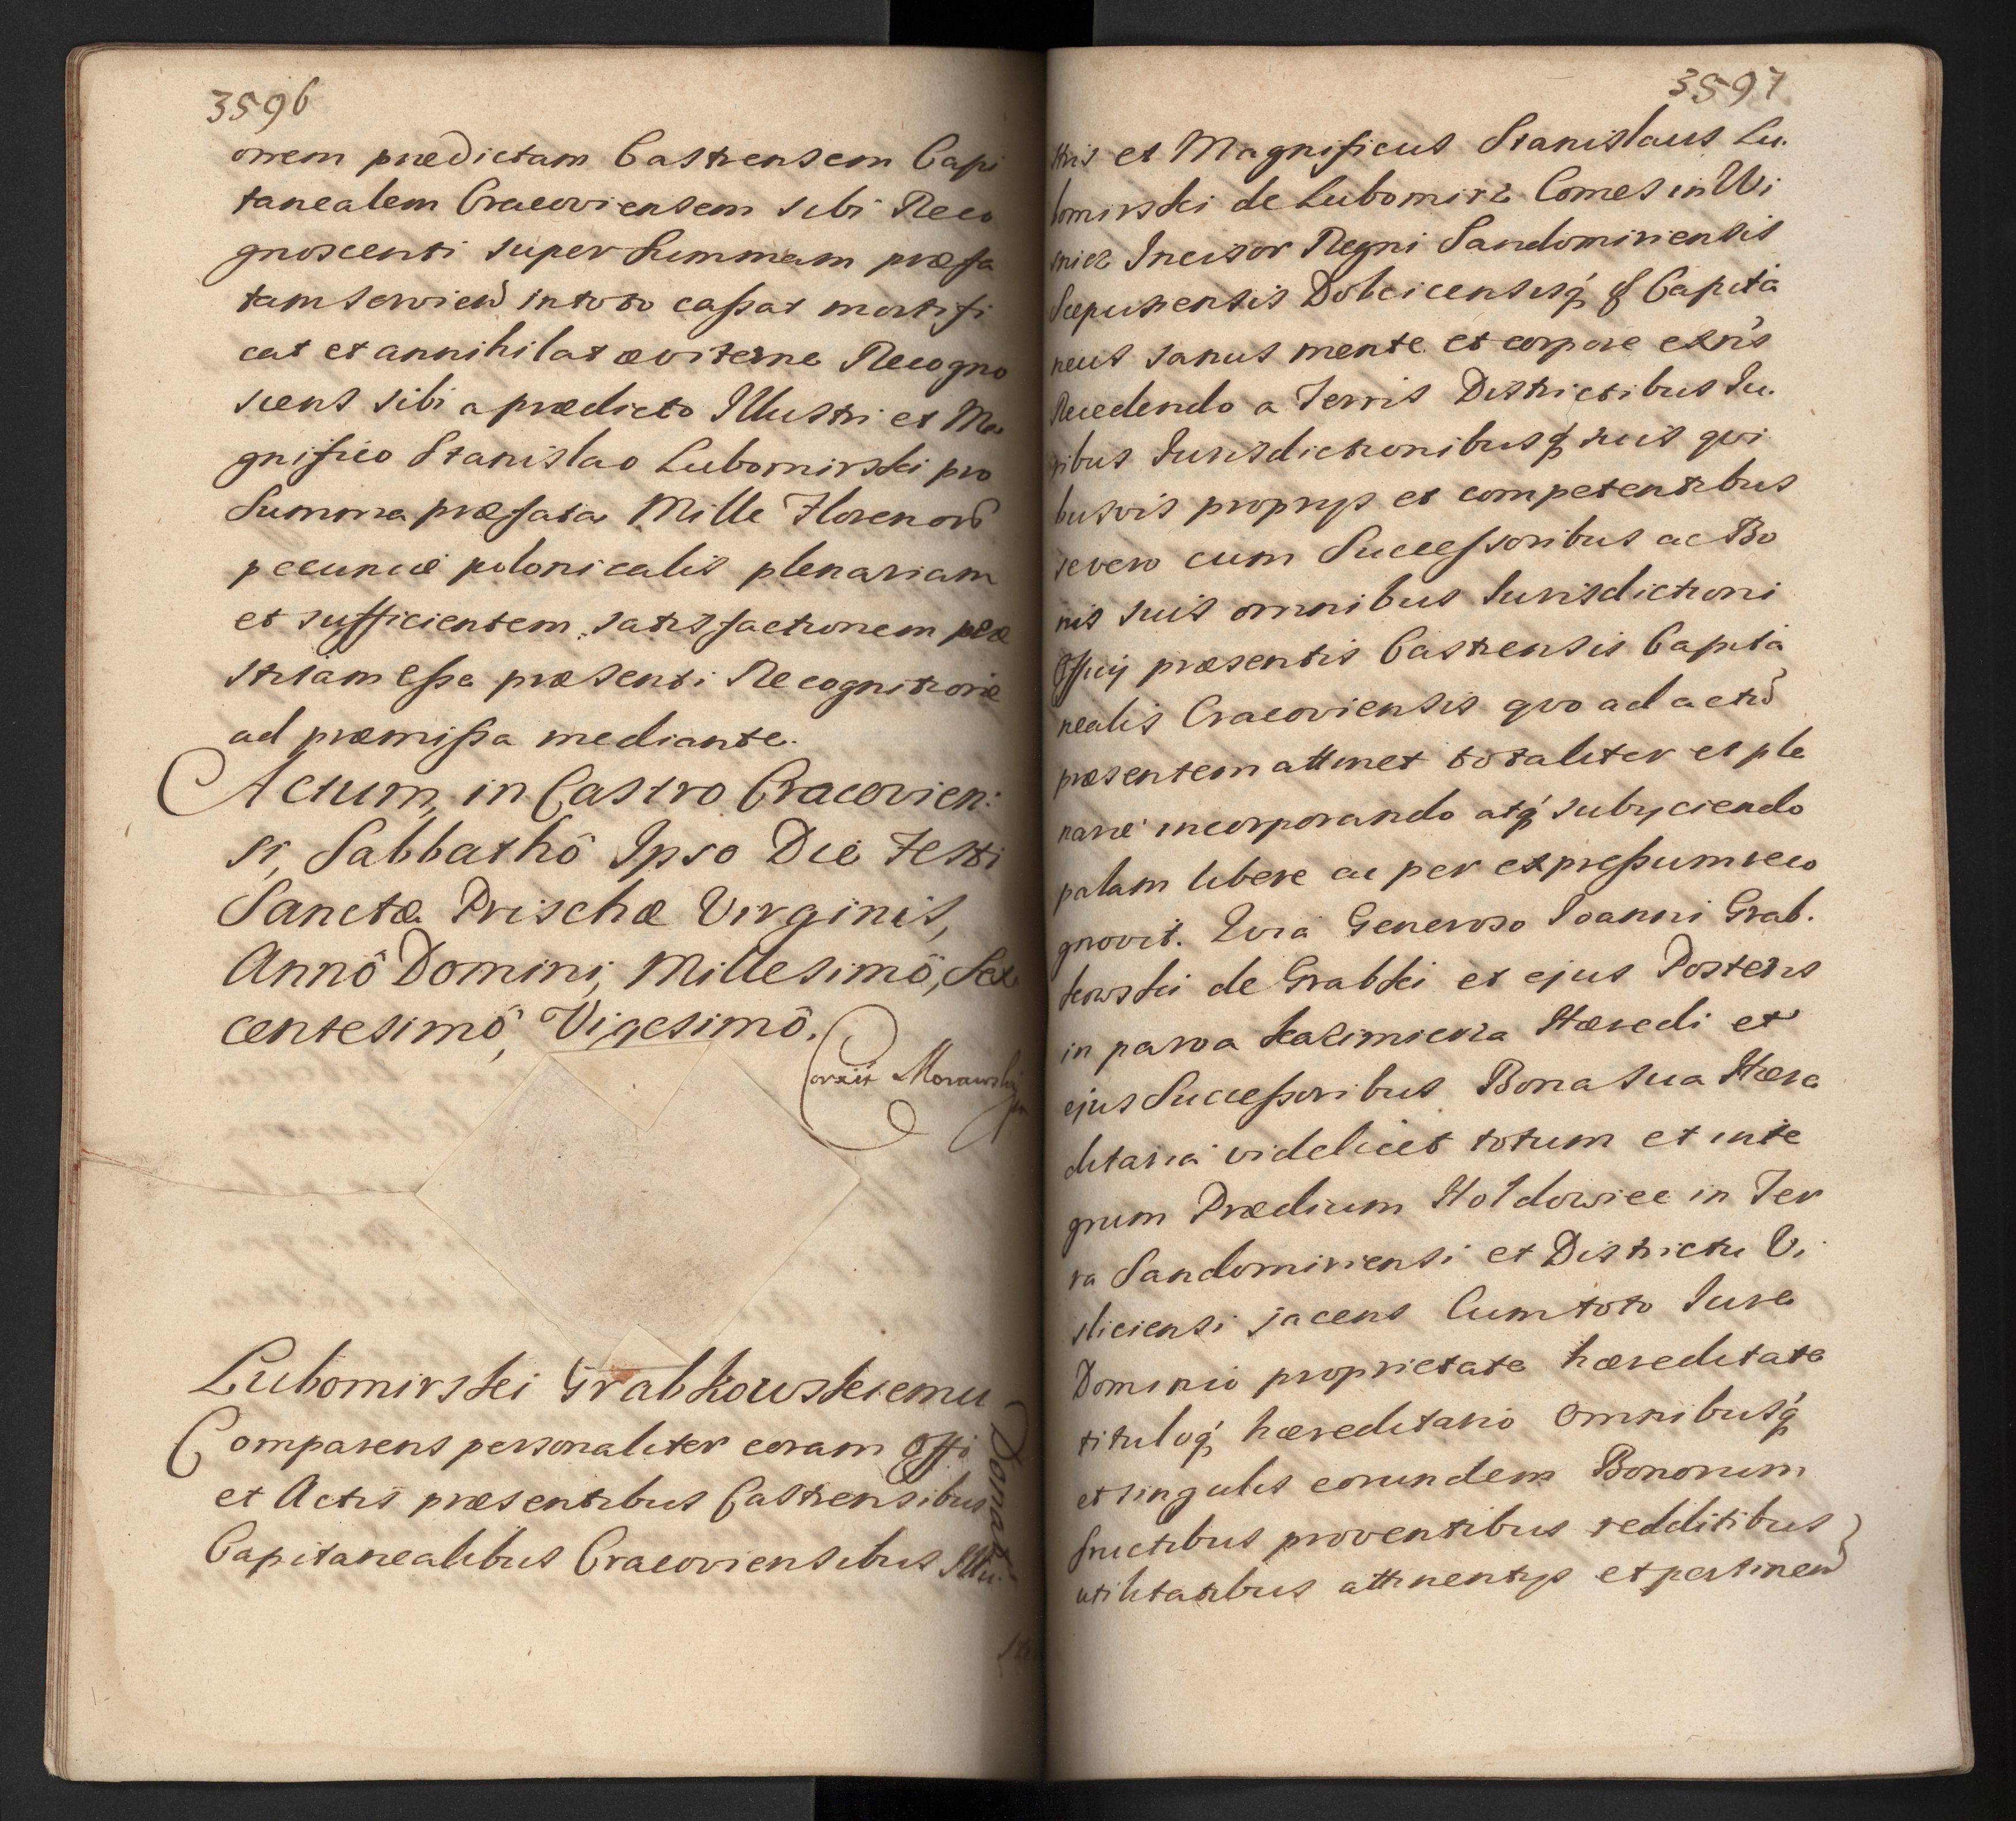 3596
onem prædictam Castrensem Capi
tanealem Cracoviensem sibi Reco
gnoscenti super Summam præfa
tam servien in toto caßat mortifi
cat et annihilat æviterne Recogno
scens sibi a prædicto Illustri et Ma
gnifico Stanislao Lubomirski pro
Summa præfata Mille Floreno
pecuniæ polonicalis plenariam
et sufficientem satisfactionem præ
stitam eße præsenti Recognitione
ad præmißa mediante.
Actum, in Castro Cracovien:
si, Sabbathô Ipso Die Festi
Sanctæ Prischæ Virginis,
Annô Domini, Millesimô, Sex
centesimô, Vigesimô.
Corxit Morawski
Lubomirski Grabkowskiemu
Donati
Comparens personaliter coram Offi
et Actis præsentibus Castrensibus
Capitanealibus Cracoviensibus Illu
3597
stris et Magnificus Stanislaus Lu.
bomirski de Lubomirz Comes in Wi
snicz Incisor Regni Sandomiriensis
Scepusiensis Dobcicensisq́ & Capita
neus sanus mente et corpore exñs
Recedendo a Terris Districtibus Iu.
ribus Iurisdictionibusq́ suis qui
busvis proprys et competentibus
se vero cum Succeßoribus ac Bo
nis suis omnibus Iurisdictioni
Officÿ præsentis Castrensis Capita
nealis Cracoviensis quo ad actũ
præsentem attinet totaliter et ple
narie incorporando atq́ subyciendo
palam libere ac per expreßum reco
gnovit. Quia Generoso Ioanni Grab.
kowski de Grabki et ejus Posteris
in parva Kazimierza Hæredi et
ejus Succeßoribus Bona sua Hære
ditaria videlicet totum et inte
grum Prædium Hołdowiec in Ter
ra Sandomiriensi et Districtu Vi
sliciensi jacens Cum toto Iure
Dominio proprietate hæreditate
tituloq́ hæreditario Omnibusq́
et singulis eorundem Bonorum
fructibus proventibus redditibus
utilitatibus attinentys et pertinen